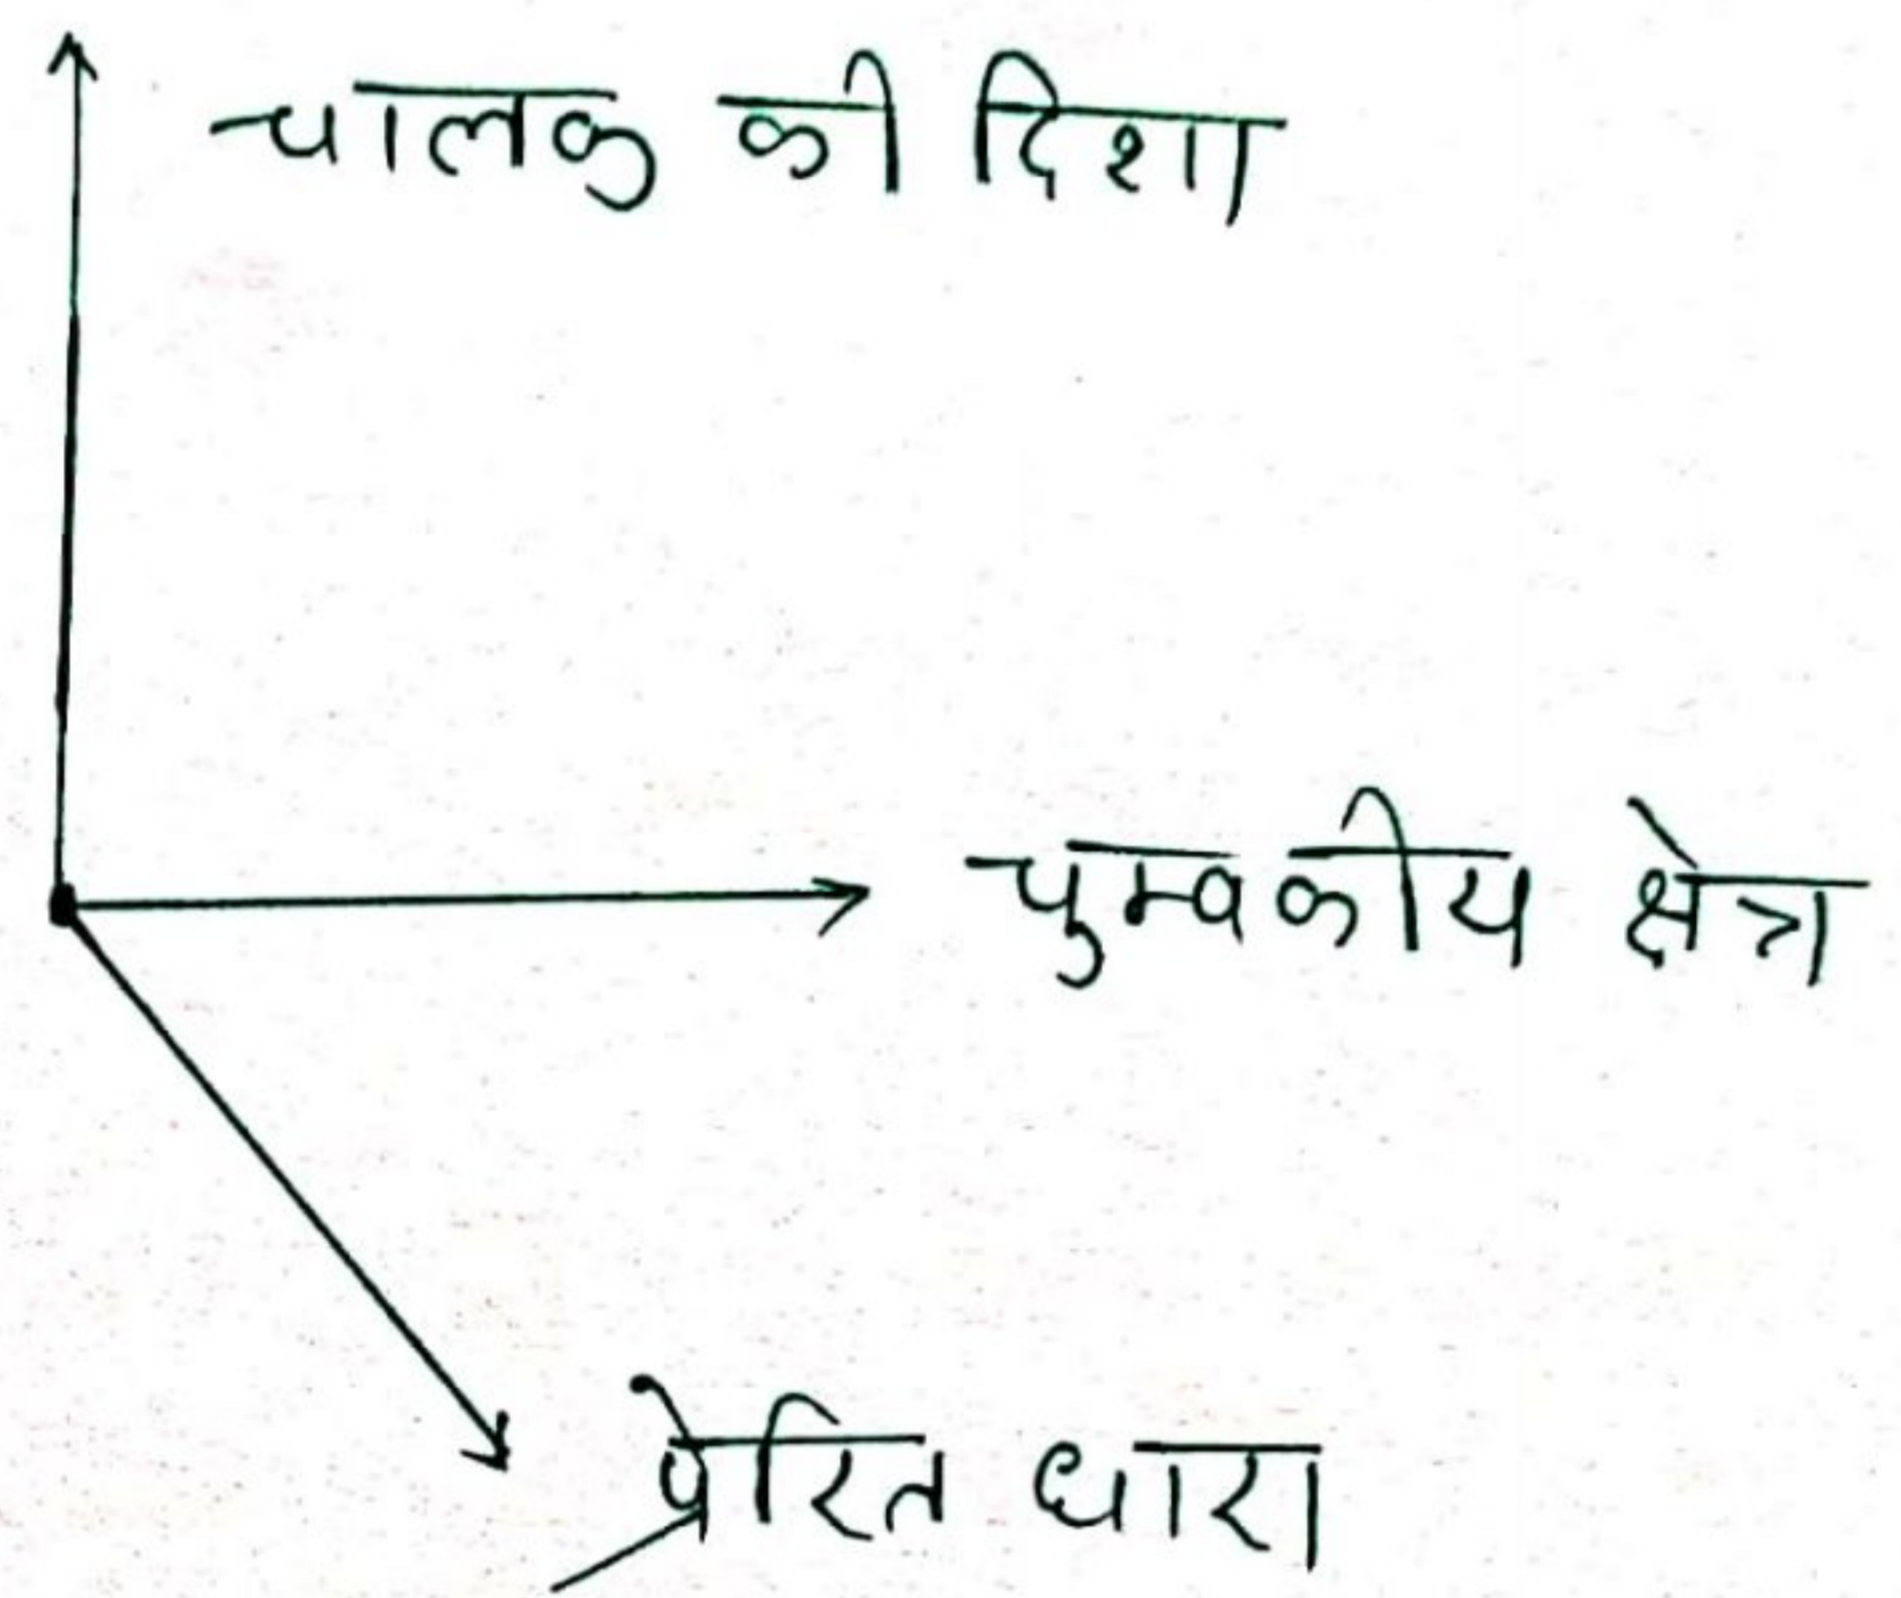 चालक की दिशा
चुम्वकीय क्षेत्र
प्रेरित धारा